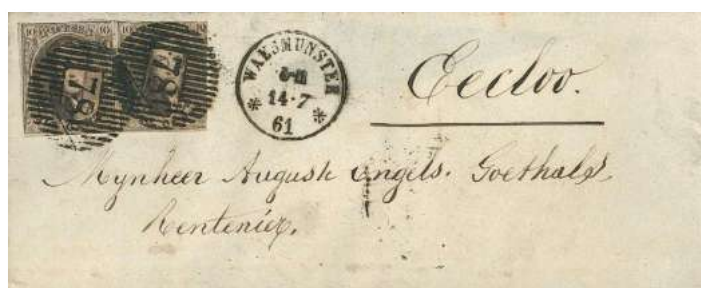 10 10 10
78 78
WAESMUNSTER
14·7
61
Eecloo.
Mynheer August Engels. Goethals,
Rentenier.